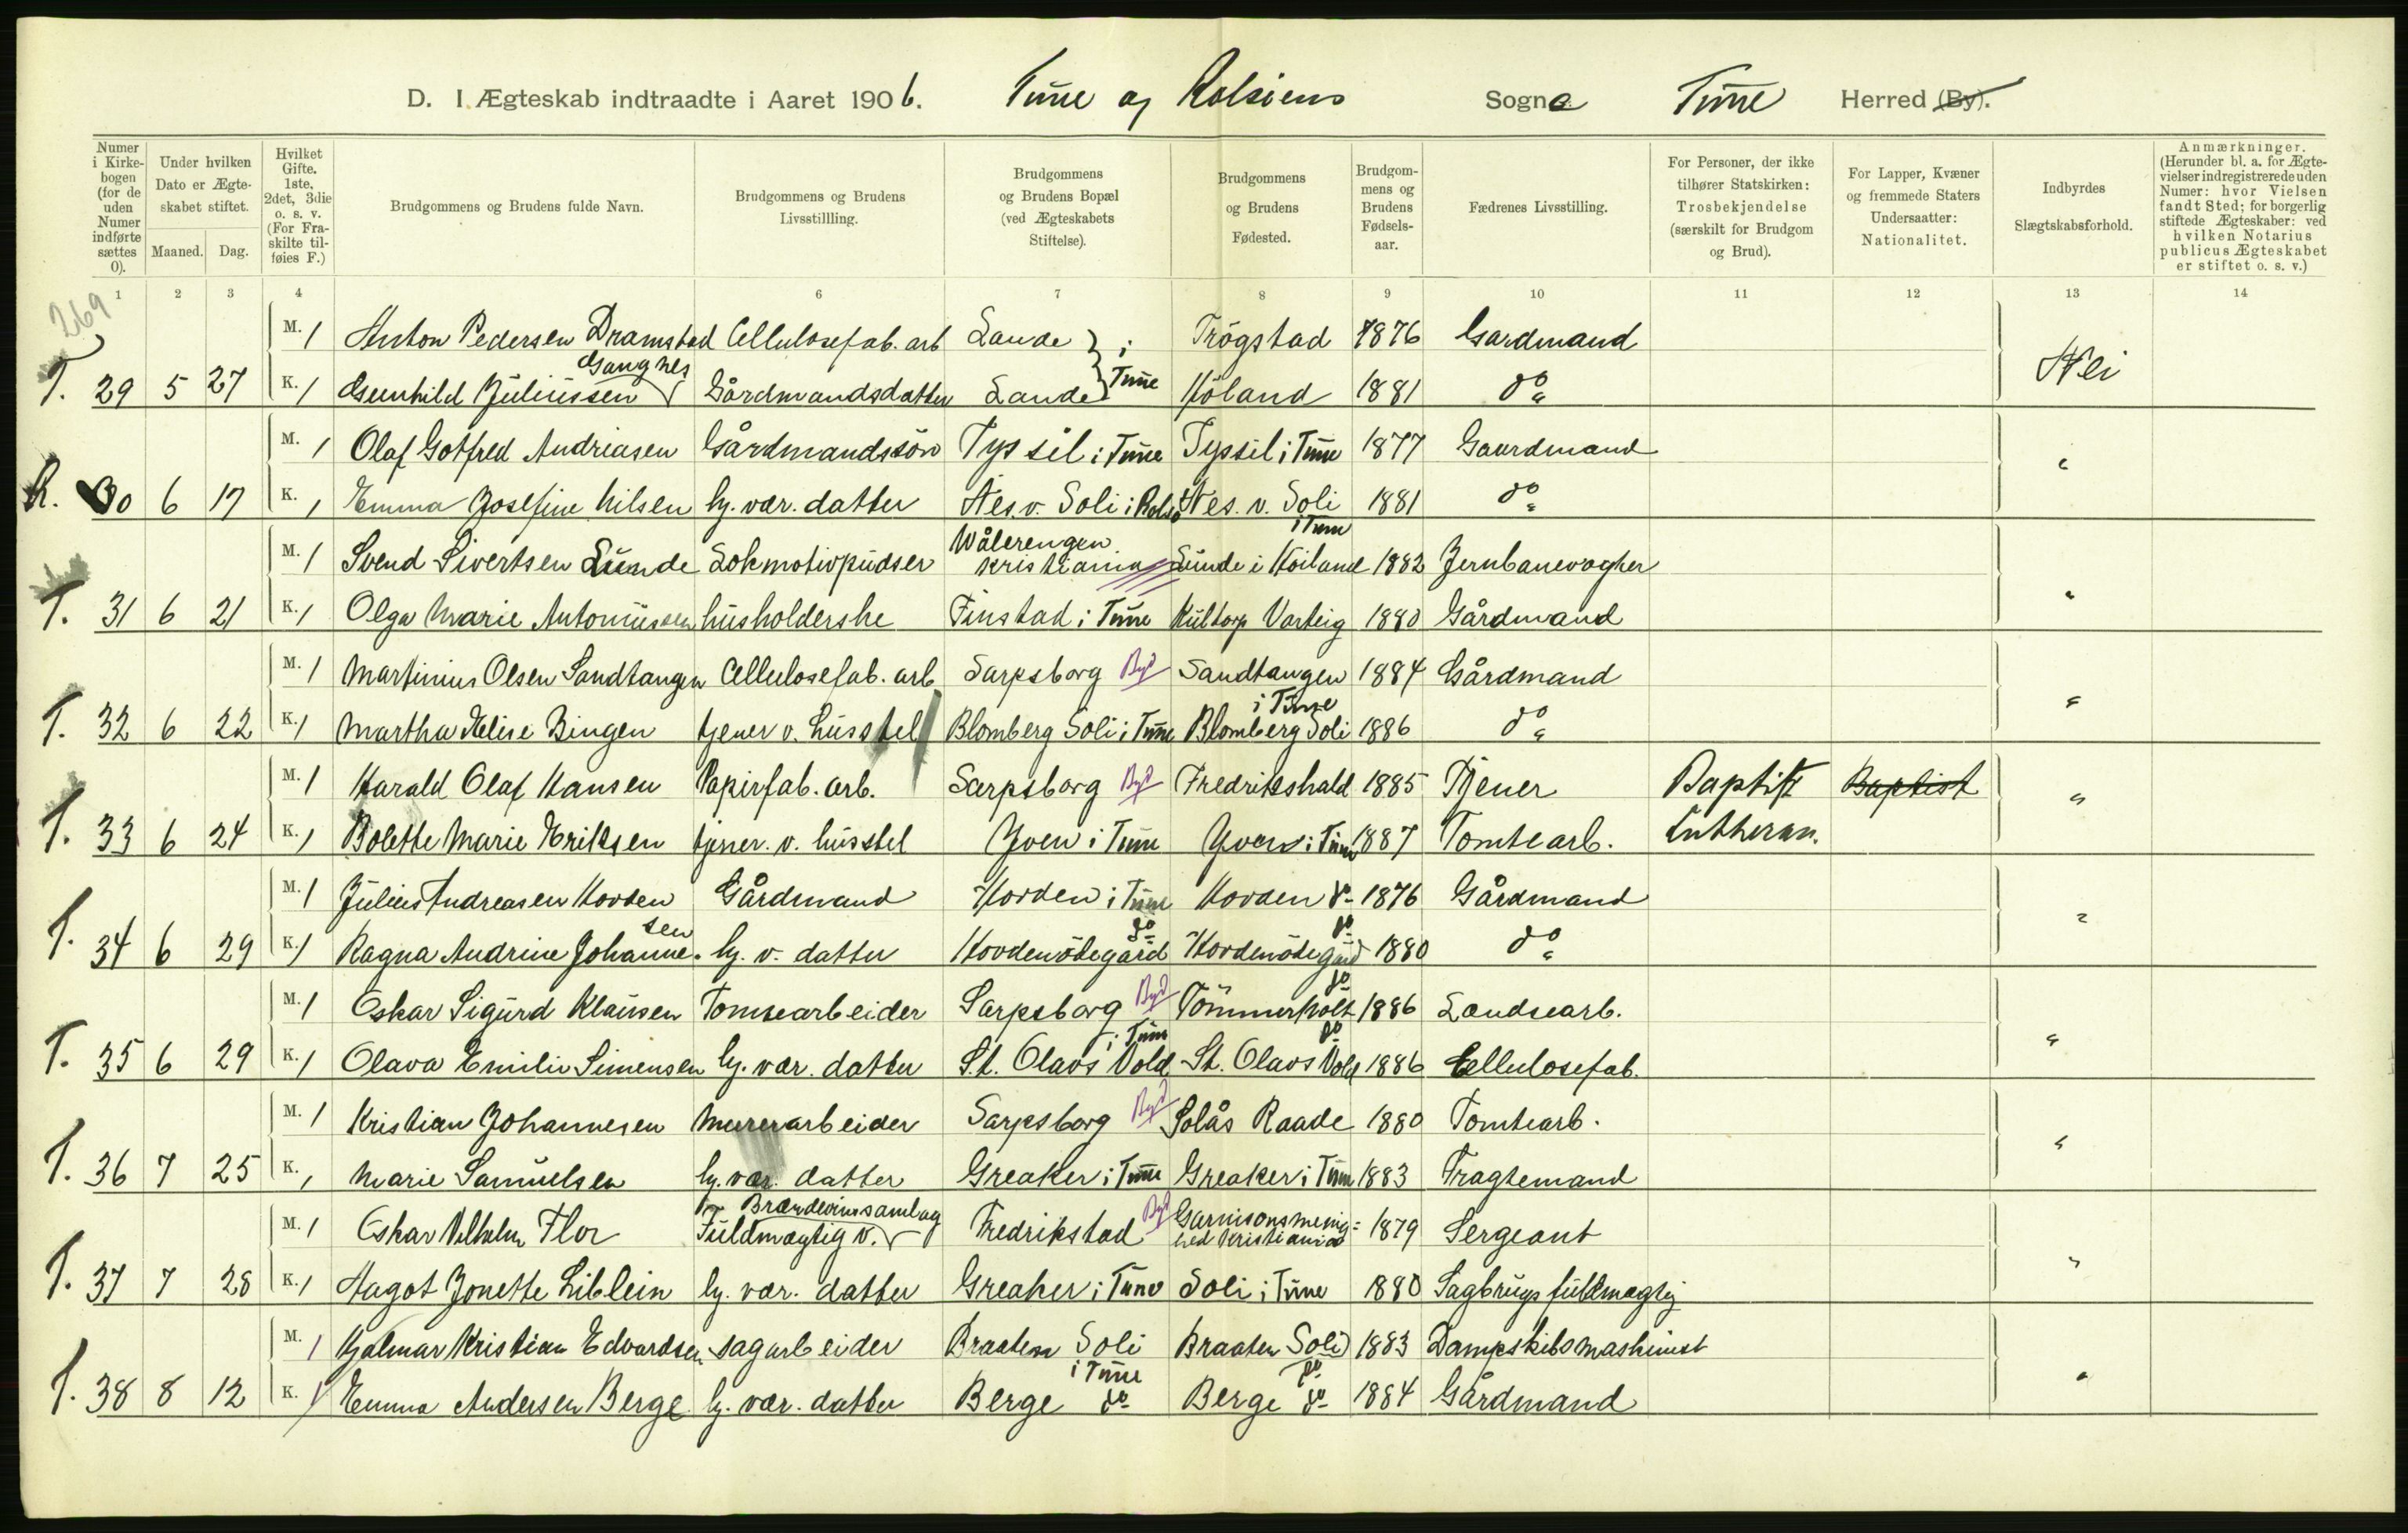 D. I Ægteskab indtraadte i Aaret 1906. Tune og Rolsøens Sogne Tune Herred (By).
Numer i Kirkebogen (for de uden Numer indførte sættes 0).
Under hvilken Dato er Ægteskabet stiftet.
Maaned. Dag.
Hvilket Gifte. 1ste, 2det, 3die o. s. v. (For Fraskilte tilføies F.)
Brudgommens og Brudens fulde Navn.
Brudgommens og Brudens Livsstillling.
Brudgommens og Brudens Bopæl (ved Ægteskabets Stiftelse).
Brudgommens og Brudens Fødested.
Brudgommens og Brudens Fødselsaar.
Fædrenes Livsstilling.
For Personer, der ikke tilhører Statskirken: Trosbekjendelse (særskilt for Brudgom og Brud).
For Lapper, Kvæner og fremmede Staters Undersaatter: Nationalitet.
Indbyrdes Slægtskabsforhold.
Anmærkninger. (Herunder bl. a. for Ægtevielser indregistrerede uden Numer: hvor Vielsen fandt Sted; for borgerlig stiftede Ægteskaber: ved hvilken Notarius publicus Ægteskabet er stiftet o. s. v.)
1 2 3 4 6 7 8 9 10 11 12 13 14
269
M. 1 Anton Pedersen Dramstad Cellulosefab. arb Lande } i Trögstad 1876 Gardmand
T. 29 5 27 K. 1 Gunhild Juliussen Gaardmandsdatter Lande } Tune Höland 1881 do Nei
M. 1 Olaf Gotfred Andriasen Gårdmandssön Tyssil i Tune Tyssil i Tune 1877 Gaardmand
R. 30 6 17 K. 1 Emma Josefine Nilsen hj. vær. datter Nes. v. Soli i Rolsø Nes. v. Soli i Tune 1881 do "
M. 1 Svend Sivertsen Lunde Lokmotivpudser Wålerengen Kristiania Lunde i Höiland 1882 Jernbanevogter
T. 31 6 21 K. 1 Olga Marie Antoniussen husholderske Finstad i Tune Kultorp Varteig 1880 Gårdmand "
M. 1 Martinius Olsen Sandtangen Cellulosefab. arb Sarpsborg By Sandtangen i Tune 1884 Gårdmand
T. 32 6 22 K. 1 Martha Elise Bingen tjener v. husstel Blomberg Soli i Tune Blomberg Soli 1886 do "
M. 1 Harald Olaf Hansen Papirfab. arb. Sarpsborg By Fredrikshald 1885 Tjener Baptist Baptist
T. 33 6 24 K. 1 Bolette Marie Eriksen tjener. v. husstel Yven i Tune Yven i Tune 1887 Tomtearb. Lutheran. "
M. 1 Julius Andreasen Hovden Gårdmand Hovden i Tune Hovden do 1876 Gårdmand
T. 34 6 29 K. 1 Ragna Andrine Johannesen hj. v. datter Hovdenödegård do Hovdenödegård do 1880 do "
M. 1 Oskar Sigurd Klausen Tomtearbeider Sarpsborg By Tömmerholt do 1886 Landsearb.
T. 35 6 29 K. 1 Olava Emilie Simensen hj. vær. datter St. Olavs Vold i Tune St. Olavs Vold do 1886 Cellulosefab. "
M. 1 Kristian Johannesen Murerarbeider Sarpsborg By Solås Raade 1880 Tomtearb.
T. 36 7 25 K. 1 Marie Samuelsen hj. vær. datter Greaker i Tune Greaker i Tune 1883 Fragtemand "
M. 1 Oskar Vilhelm Flor Fuldmægtig v. Brændevinssamlag Fredrikstad By Garnisonsmenighed Kristiania 1879 Sergeant
T. 37 7 28 K. 1 Hagot Jonette Liblein hj. vær. datter Greaker i Tune Soli i Tune 1880 Sagbrugsfuldmægtig "
M. 1 Hjalmar Kristian Edvardsen sagarbeider Braaten Soli i Tune Braaten Soli do 1883 Dampskibsmaskinist
T. 38 8 12 K. 1 Emma Andersen Berge hj. vær. datter Berge do Berge do 1884 Gårdmand "